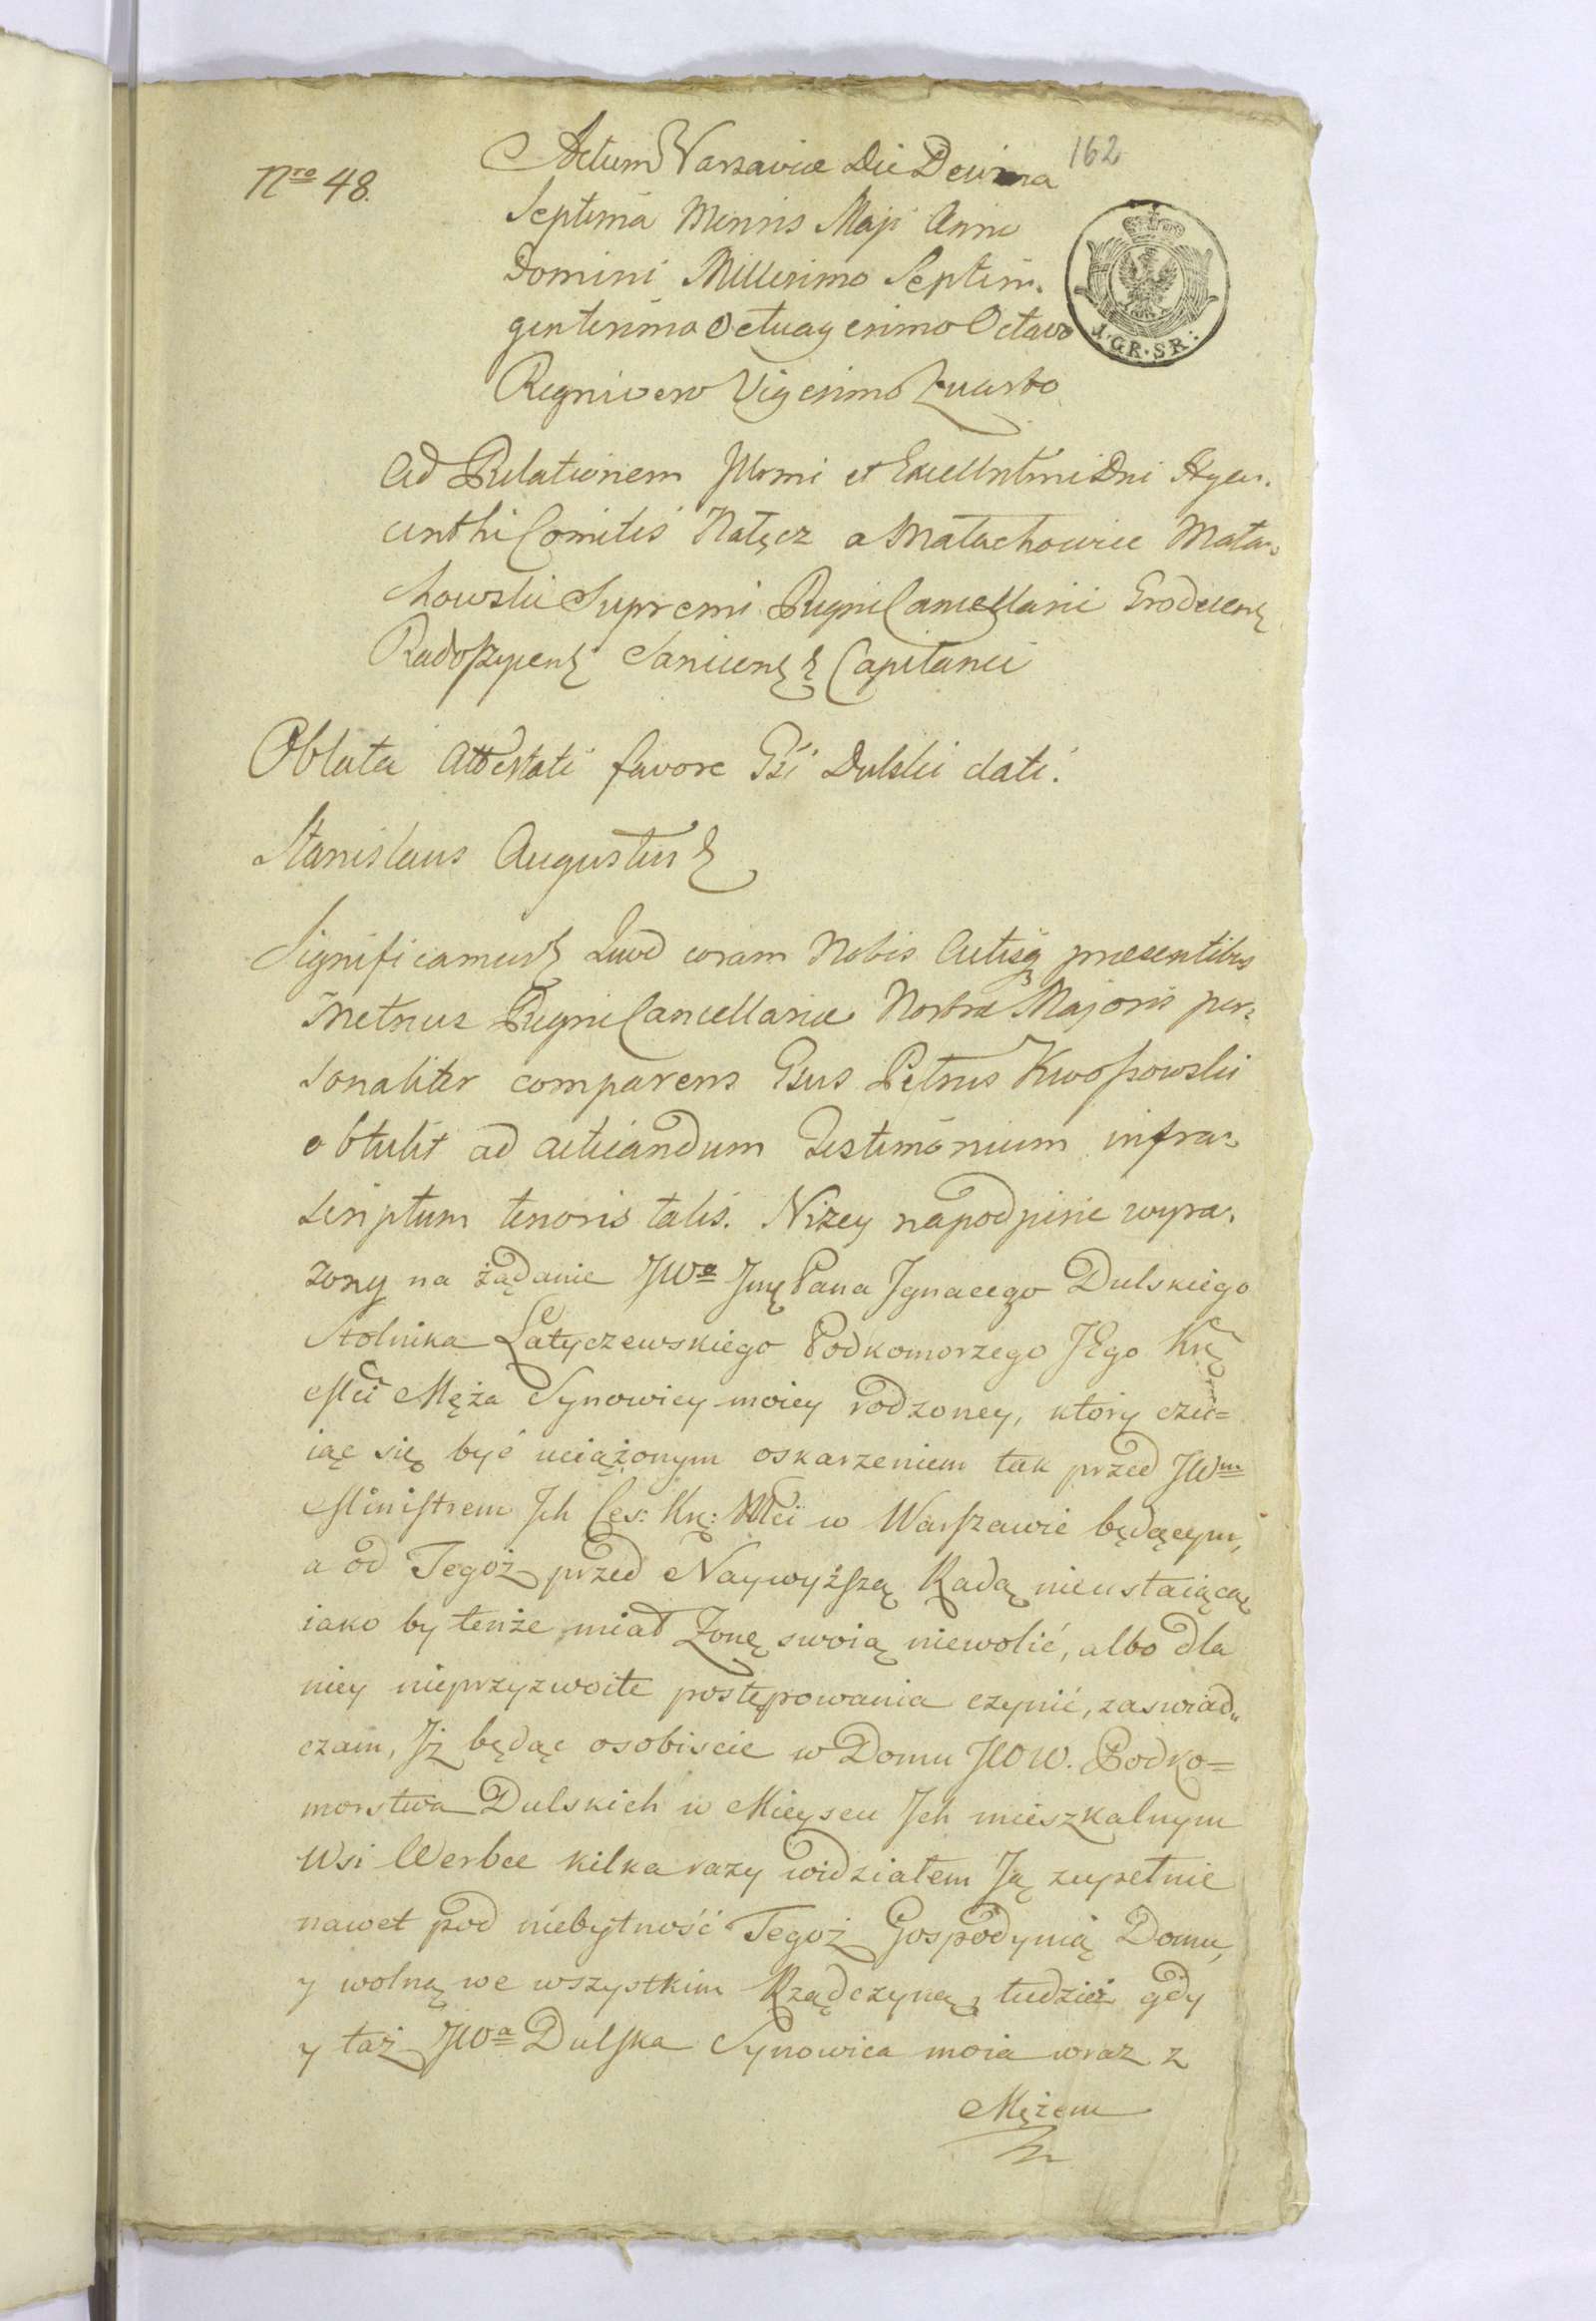 162
Nro 48.
Actum Varsaviæ Die Decima
Septima Mensis Maji Anno
Domini Millesimo Septin.
gentesimo Octuagesimo Octavo
Regni vero Vigesimo Quarto
J. GR. SR:
Ad Relationem Jllrmi et Excellntmi Dni Hyac.
cinthi Comitis Nałęcz a Małachowice Mała.
chowski Supremi Regni Cancellarii Grodecens
Radoszycens Sanicens Capitanei
Oblata Attestati favore Gsi Dulski dati.
Stanislaus Augustus
Significamus Quod coram Nobis Actisq presentibus
Metrices Regni Cancellariæ Nostræ Majoris per:
sonaliter comparens Gsus Petrus Kwossowski
obtulit ad acticandum Testimonium infra:
scriptum tenoris talis. Niżey napodpisie wyra.
żony na żądanie JWo Jmę Pana Jgnacego Dulskiego
Stolnika Latyczewskiego Podkomorzego JEgo Krę
Mci Męża Synowicy moiey rodzoney, ktory czu=
iąc się być uciążonym oskarzeniem tak przed JWm
Ministrem Jch Ces: Krę: Mci w Warszawie będącym,
a od Tegoż przed Naywyższą Radą nieustaiącą
iako by tenże miał Zonę swoią niewolić, albo dla
niey nieprzyzwoite postępowania czynić, zaswiad„
czam, Jż będąc osobiscie w Domu JWW. Podko=
morstwa Dulskich w Mieyscu Jch mieszkalnym
Wsi Werbce kilka razy widziałem Ją zupełnie
nawet pod niebytność Tegoż Gospodynią Domu,
y wolną we wszystkim Rządczyną, tudzież gdy
y taż JWa Dulska Synowica moia wraz z
Mężem